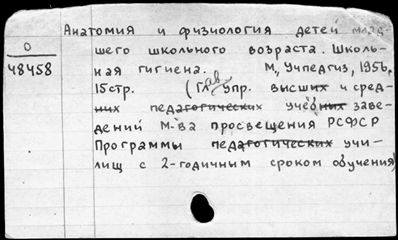 Анатомия и физиология детей млад-
шего школьного возраста. Школь-
ная гигиена. М., Учпедгиз, 1956.
15стр. (Глав. Упр. высших и сред-
них педагогических учебных заве-
дений М-ва просвещения РСФСР
Программы педагогических учи-
лищ с 2-годичным сроком обучения)
0
48458